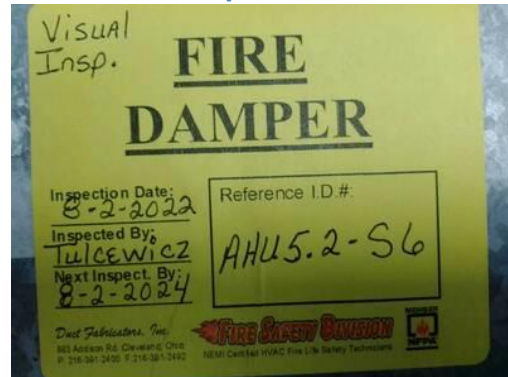 Visual
Insp.
FIRE
DAMPER
Inspection Date:
8-2-2022
Inspected By:
Tulcewicz
Next Inspect. By:
8-2-2024
Reference I.D.#:
AHU5.2-S6
Duct Fabricators, Inc.
883 Addison Rd. Cleveland, Ohio
P. 216-391-2400 F. 216-391-2492
FIRE SAFETY DIVISION
NEMI Certified HVAC Fire Life Safety Technicians
MEMBER
NFPA